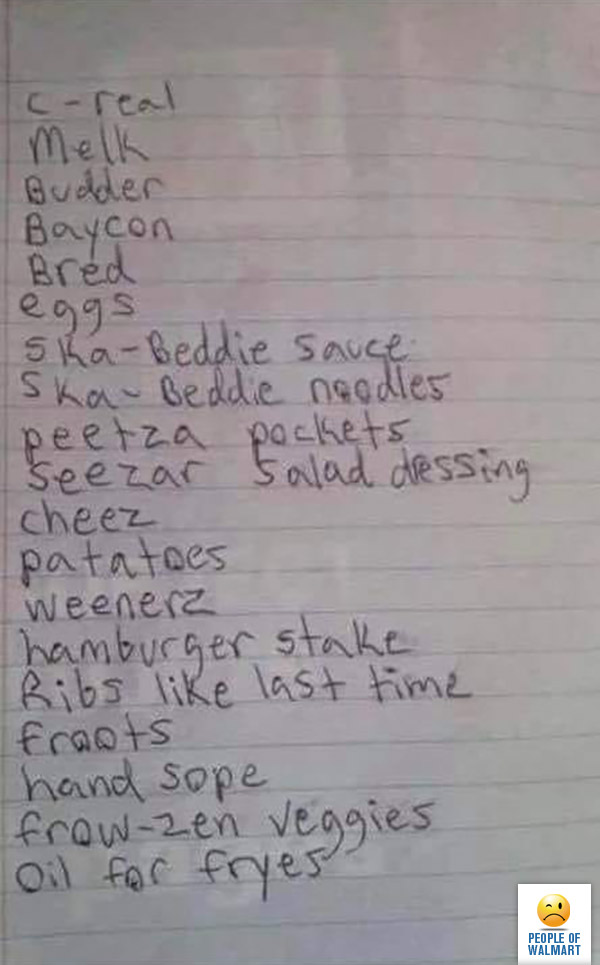 c-real
Melk
Budder
Baycon
Bred
eggs
Ska-Beddie sauce
Ska-Beddie noodles
peetza pockets
Seezar Salad dressing
cheez
patatoes
weenerz
hamburger stake
Ribs like last time
froots
hand sope
frow-zen veggies
oil for fryes
PEOPLE OF
WALMART